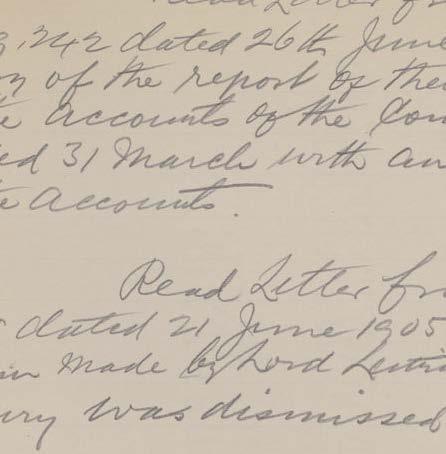 Read Letter fr
3,242 dated 26th June
of the report of the
accounts of the Con
ed 31 March with an
accounts.
Read Letter fro
dated 21 June 1905
made by Lord Leitri
ury was dismissed